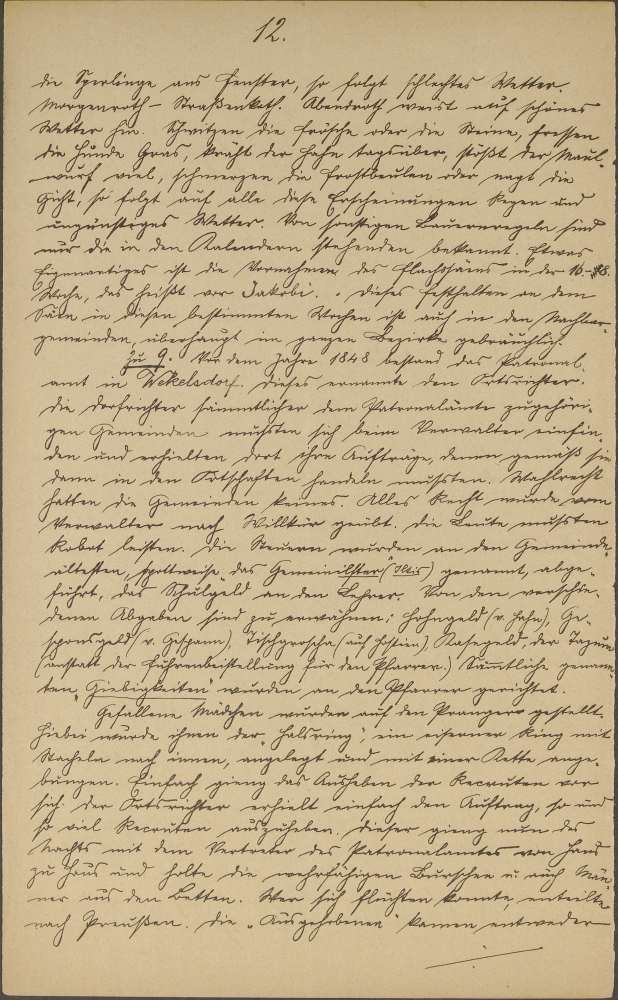 12.
die Sperlinge ans Fenster, so folgt schlechtes Wetter.
Morgenroth – Straßenkoth. Abendroth weist auf schönes
Wetter hin. Schwitzen die Frösche oder die Steine, fressen
die Hunde Gras, kräht der Hahn tagsüber, stößt der Maul-
wurf viel, schmerzen die Frostbeulen oder nagt die
Gicht, so folgt auf alle diese Erscheinungen Regen und
ungünstiges Wetter. Von sonstigen Bauernregeln sind
nur die in den Kalendern stehenden bekannt. Etwas
Eigenartiges ist die Vornahme des Flachssäens in der
Woche, das heißt vor Jakobi. Dieses Festhalten an dem
Säen in diesen bestimmten Wochen ist auch in den Nachbar-
gemeinden, überhaupt im ganzen Bezirke gebräuchlich.
Zu 9. Vor dem Jahre 1848 bestand das Patronal-
amt in Wekelsdorf. Dieses ernannte den Ortsrichter.
Die Dorfrichter sämmtlicher dem Patronalamte zugehöri-
gen Gemeinden mußten sich beim Verwalter einfin-
den und erhielten dort ihre Aufträge, denen gemäß sie
dann in den Ortschaften handeln mußten. Wahlrecht
hatten die Gemeinden keines. Alles Recht wurde vom
Verwalter nach Willkür geübt. Die Leute mußten
Robot leisten. Die Steuern wurden an den Gemeinde-
ältesten, spottweise das Gemeinilster (Iltis) genannt, abge-
führt, das Schulgeld an den Lehrer. Von den verschie-
denen Abgaben sind zu erwähnen: Hohngeld (v. Hahn), Ge-
sponsgeld (v. Gespann), Tischgroscha (auch Hostien), Kasegeld, der Dezem
(anstatt der Fuhrenbeistellung für den Pfarrer.) Sämtliche genann-
ten „Giebigkeiten" wurden an den Pfarrer gerichtet.
Gefallene Mädchen wurden auf den Pranger gestellt.
Hiebei wurde ihnen der „Halsring", ein eiserner Ring mit
Stacheln nach innen, angelegt und mit einer Kette ange-
bungen. Einfach gieng das Ausheben der Recruten vor
sich. Der Ortsrichter erhielt einfach den Auftrag, so und
so viel Recruten auszuheben. Dieser gieng nun des
Nachts mit dem Vertreter des Patronalamtes von Haus
zu Haus und holte die wehrfähigen Burschen u auch Män-
ner aus den Betten. Wer sich flüchten konnte, enteilte
nach Preußen. Die „Ausgehobenen" kamen entweder